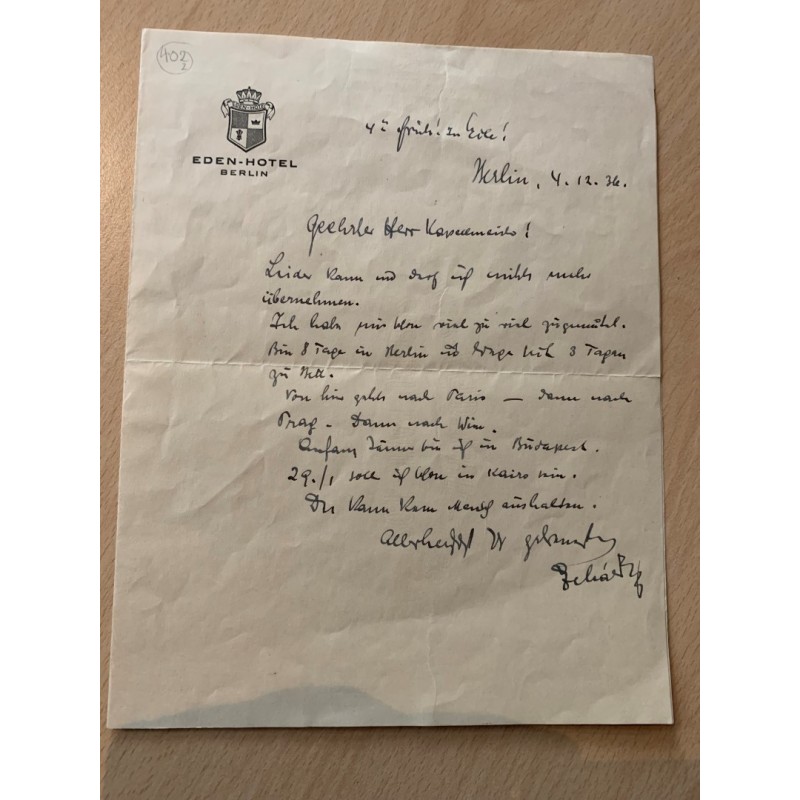 402
2
EDEN-HOTEL
EDEN-HOTEL
BERLIN
4ʰ früh! In Eile!
Berlin, 4. 12. 36.
Geehrter Herr Kapellmeister!
Leider kann und darf ich nichts mehr
übernehmen.
Ich habe mir schon viel zu viel zugemutet.
Bin 8 Tage in Berlin und liege seit 3 Tagen
zu Bett.
Von hier gehts nach Paris — dann nach
Prag – Dann nach Wien.
Anfang Jänner bin ich in Budapest.
29./1 soll ich schon in Kairo sein.
Das kann kein Mensch aushalten.
Allerherzlichst Ihr